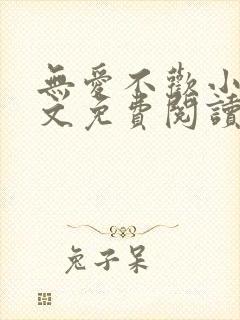 無愛不歡小
文免費閱讀
兔子呆